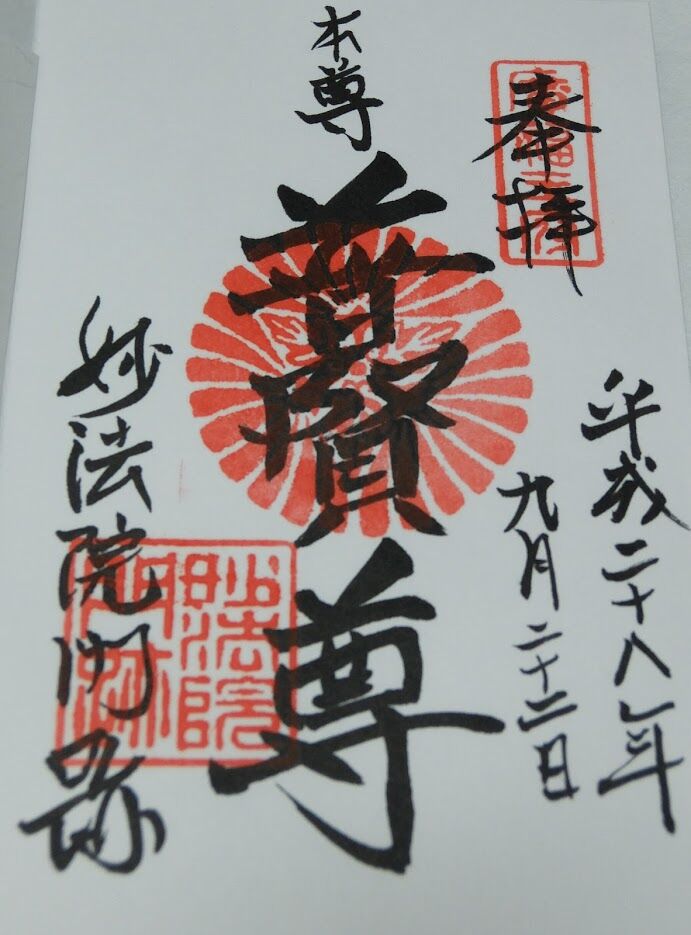 奉拝
平成二十八年
九月二十二日
本尊
普賢尊
妙法院門跡
妙法院
門跡